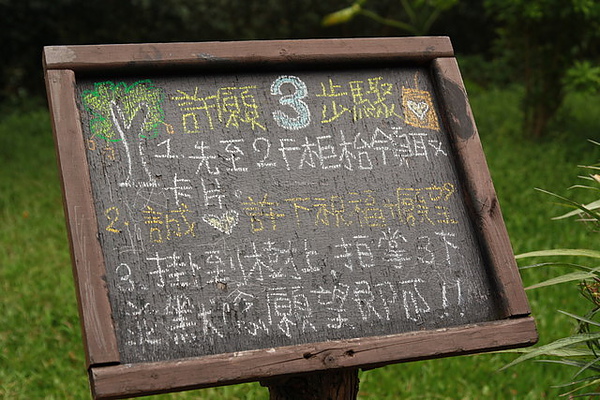 許願3步驟
1.先至2F櫃枱領取
卡片
2.誠♡許下祝福、願望
3.掛到樹上,拍掌3下
並大喊願望即可!!